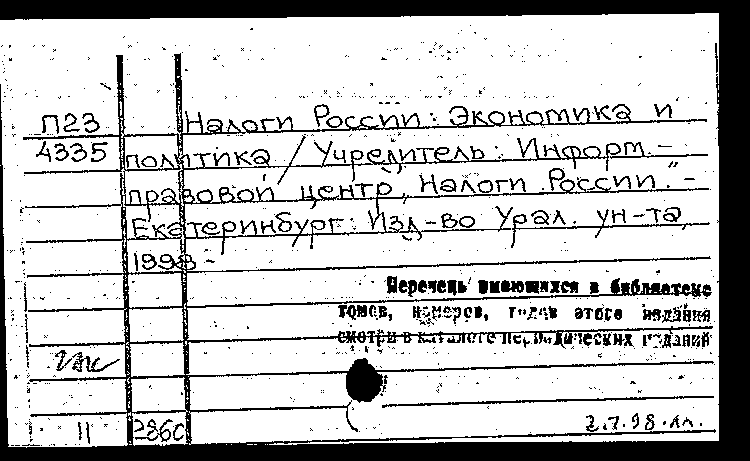 П23 Налоги России: Экономика и
4335 политика / Учредитель: Информ.-
правовой центр „Налоги России." -
Екатеринбург: Изд-во Урал. ун-та,
1998 -
Перечень имеющихся в библиотеке
томов, номеров, годов этого издания
смотри в каталоге периодических изданий
11 2860 2.7.98.